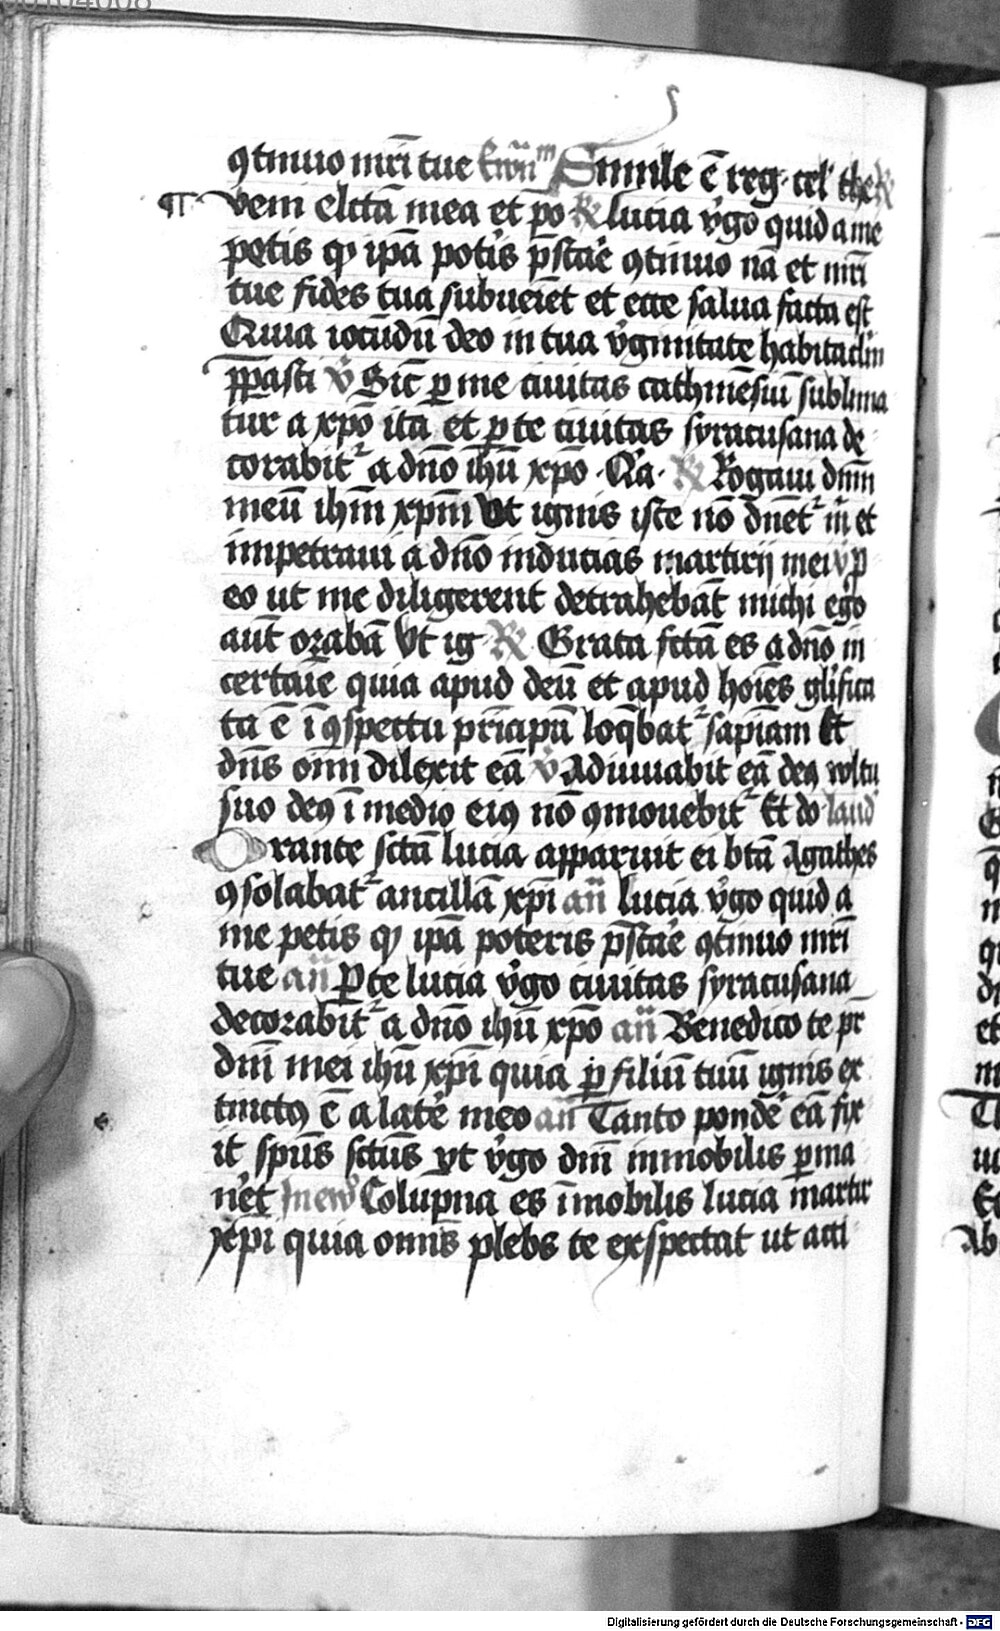 ꝯtinuo mr̄i tue Ew̄m Simile ē reg cel the ℟
veni elcta mea et po ℟ lucia v̓go quid a me
petis qͥ ip̄a potis p̄stāe ꝯtinuo nā et mr̄i
tue fides tua subueiet et ecce salua facta est
Quia iocūdū deo in tua v̓ginitate habitaclm̄
ꝑpasti ℣ Sic̄ ꝑ me ciuitas cathinēsiū sublima
tur a xp̄o ita et ꝑ te ciuitas syracusana de
corabit᷑ a dn̄o ihū xp̄o Qͥa ℟ Rogaui dnm̄
meū ihm̄ xpm̄ vt ignis iste nō dn̄et᷑ m̄ et
impetraui a dn̄o inducias martirij mei ℣ ꝓ
eo ut me diligerent detrahebāt michi ego
aut̄ orabā vt ig ℟ Grata fcta es a dn̄o in
certāie quia apud deū et apud hoīes glīfica
ta ē ī ꝯspectu prīcipū loq̄bat᷑ sapiam Et
dn̄s om̄i dilexit eā ℣ Adiuuabit eā deꝰ voltu
suo deꝰ ī medio eiꝰ nō ꝯmouebit᷑ Et do laud
Orante sctā lucia apparuit ei btā Agathes
ꝯsolabat᷑ ancillā xp̄i an̄ lucia v̓go quid a
me petis qͥ ip̄a poteris p̄stāe ꝯtinuo mr̄i
tue an̄ Per te lucia v̓go ciuitas syracusana
decorabit᷑ a dn̄o ihū xp̄o an̄ Benedico te pr̄
dn̄i mei ihū xp̄i quia ꝑ filiū tuū ignis ex
tinctꝰ ē a late meo an̄ Tanto ponde eā fix
it sp̄us sctūs vt v̓go dn̄i inmobilis ꝑma
net In ew̄ Columpna es īmobilis lucia martir
xp̄i quia omīs plebs te exspectat ut acci
Digitalisierung gefördert durch die Deutsche Forschungsgemeinschaft - DFG